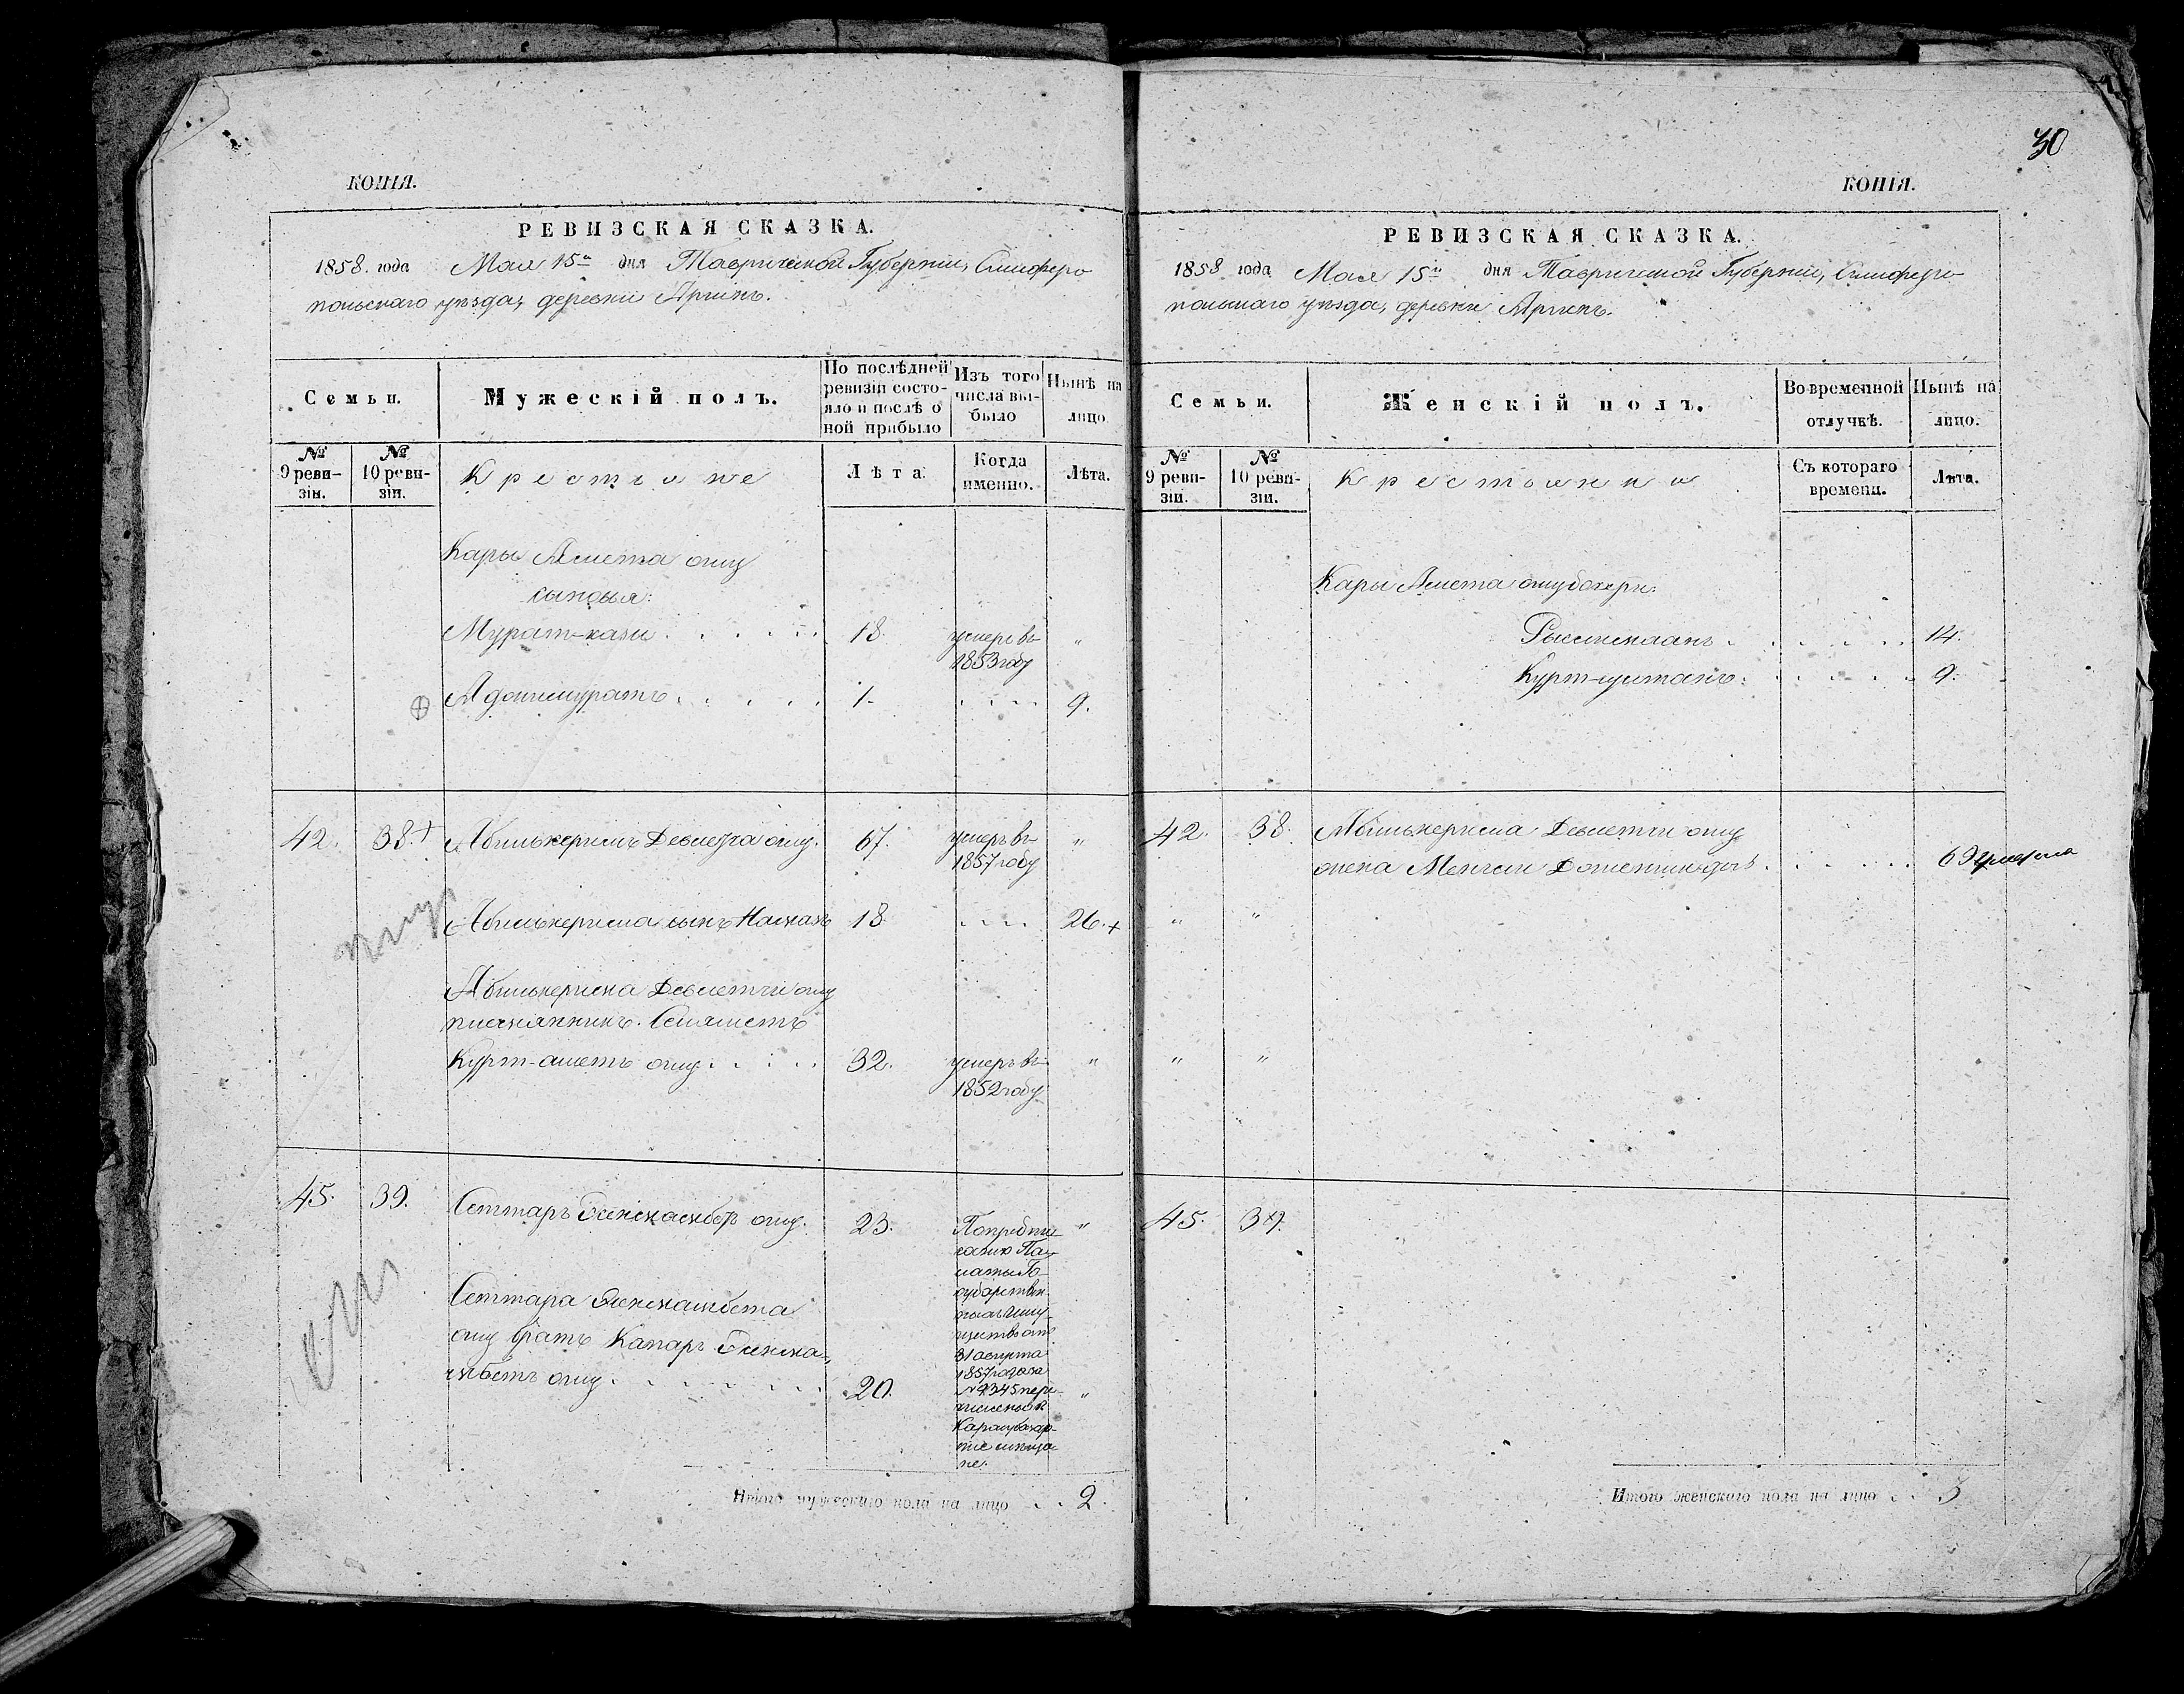 КОПІЯ.
РЕВИЗСКАЯ СКАЗКА.
1858. года Мая 15го дня Таврической Губерніи, Симферо
польскаго уѣзда, деревни Аргинъ.
Семьи.
Мужескій полъ.
По послѣдней
ревизіи состо-
яло и послѣ о
ной прибыло
Изъ того
числа вы-
было
Нынѣ на
лицо.
№
9 реви-
зіи.
№
10 реви-
зіи.
Крестьяне
Лѣта.
Когда
именно.
Лѣта.
Кары Амета оглу
сыновья:
Мурат-гази 18. умеръ въ "
1853 году
Аджимуратъ 1. 9.
42. 38. Абилькеримъ Девлетча оглу. 67. умеръ въ "
1857 году
Абилькерима сынъ 18 26.
Абилькерима Девлетчи оглу
племянникъ. Сеяметъ
Курт-аметъ оглу 32. умеръ въ "
1852 году
45. 39. Сеттаръ оглу. 23. "
По предпи-
санію Па-
латы Го-
сударствен-
ныхъ Иму-
ществъ отъ
31 августа
1857 года за
№ 9345 пере-
численъ в
Карасубазар-
ние мѣща-
не.
Сеттара
оглу братъ Капаръ
оглу 20. "
Итого мужескаго пола на лицо 2.
30
КОПІЯ.
РЕВИЗСКАЯ СКАЗКА.
1858 года Мая 15го дня Таврической Губерніи, Симферо-
польскаго уѣзда, деревни Аргинъ.
Семьи.
Женскій полъ.
Во временной
отлучкѣ.
Нынѣ на
лицо.
№
9 реви-
зіи.
№
10 реви-
зіи.
Крестьянки
Съ котораго
времени.
Лѣта.
Кары Амета оглу дочери:
14.
Курт-султанъ. 9.
42. 38. Абилькерима Девлетчи оглу
жена 69 умерла
" "
" "
45. 39.
Итого женскаго пола на лицо 3